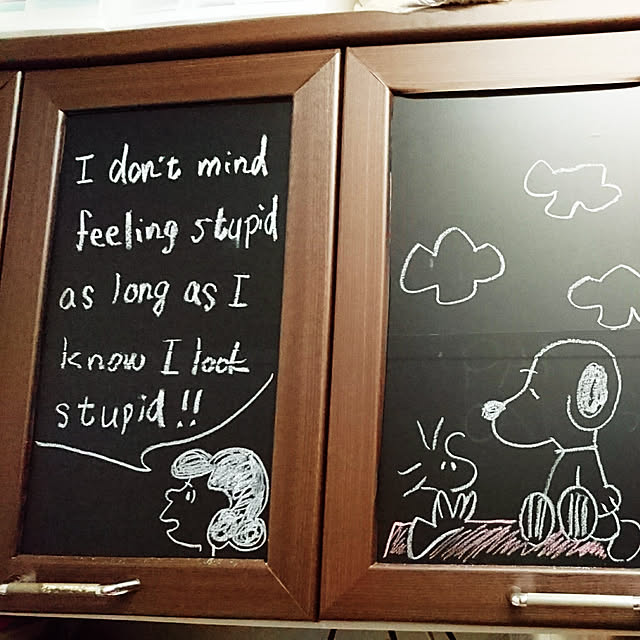 I don't mind
feeling stupid
as long as I
know I look
stupid!!